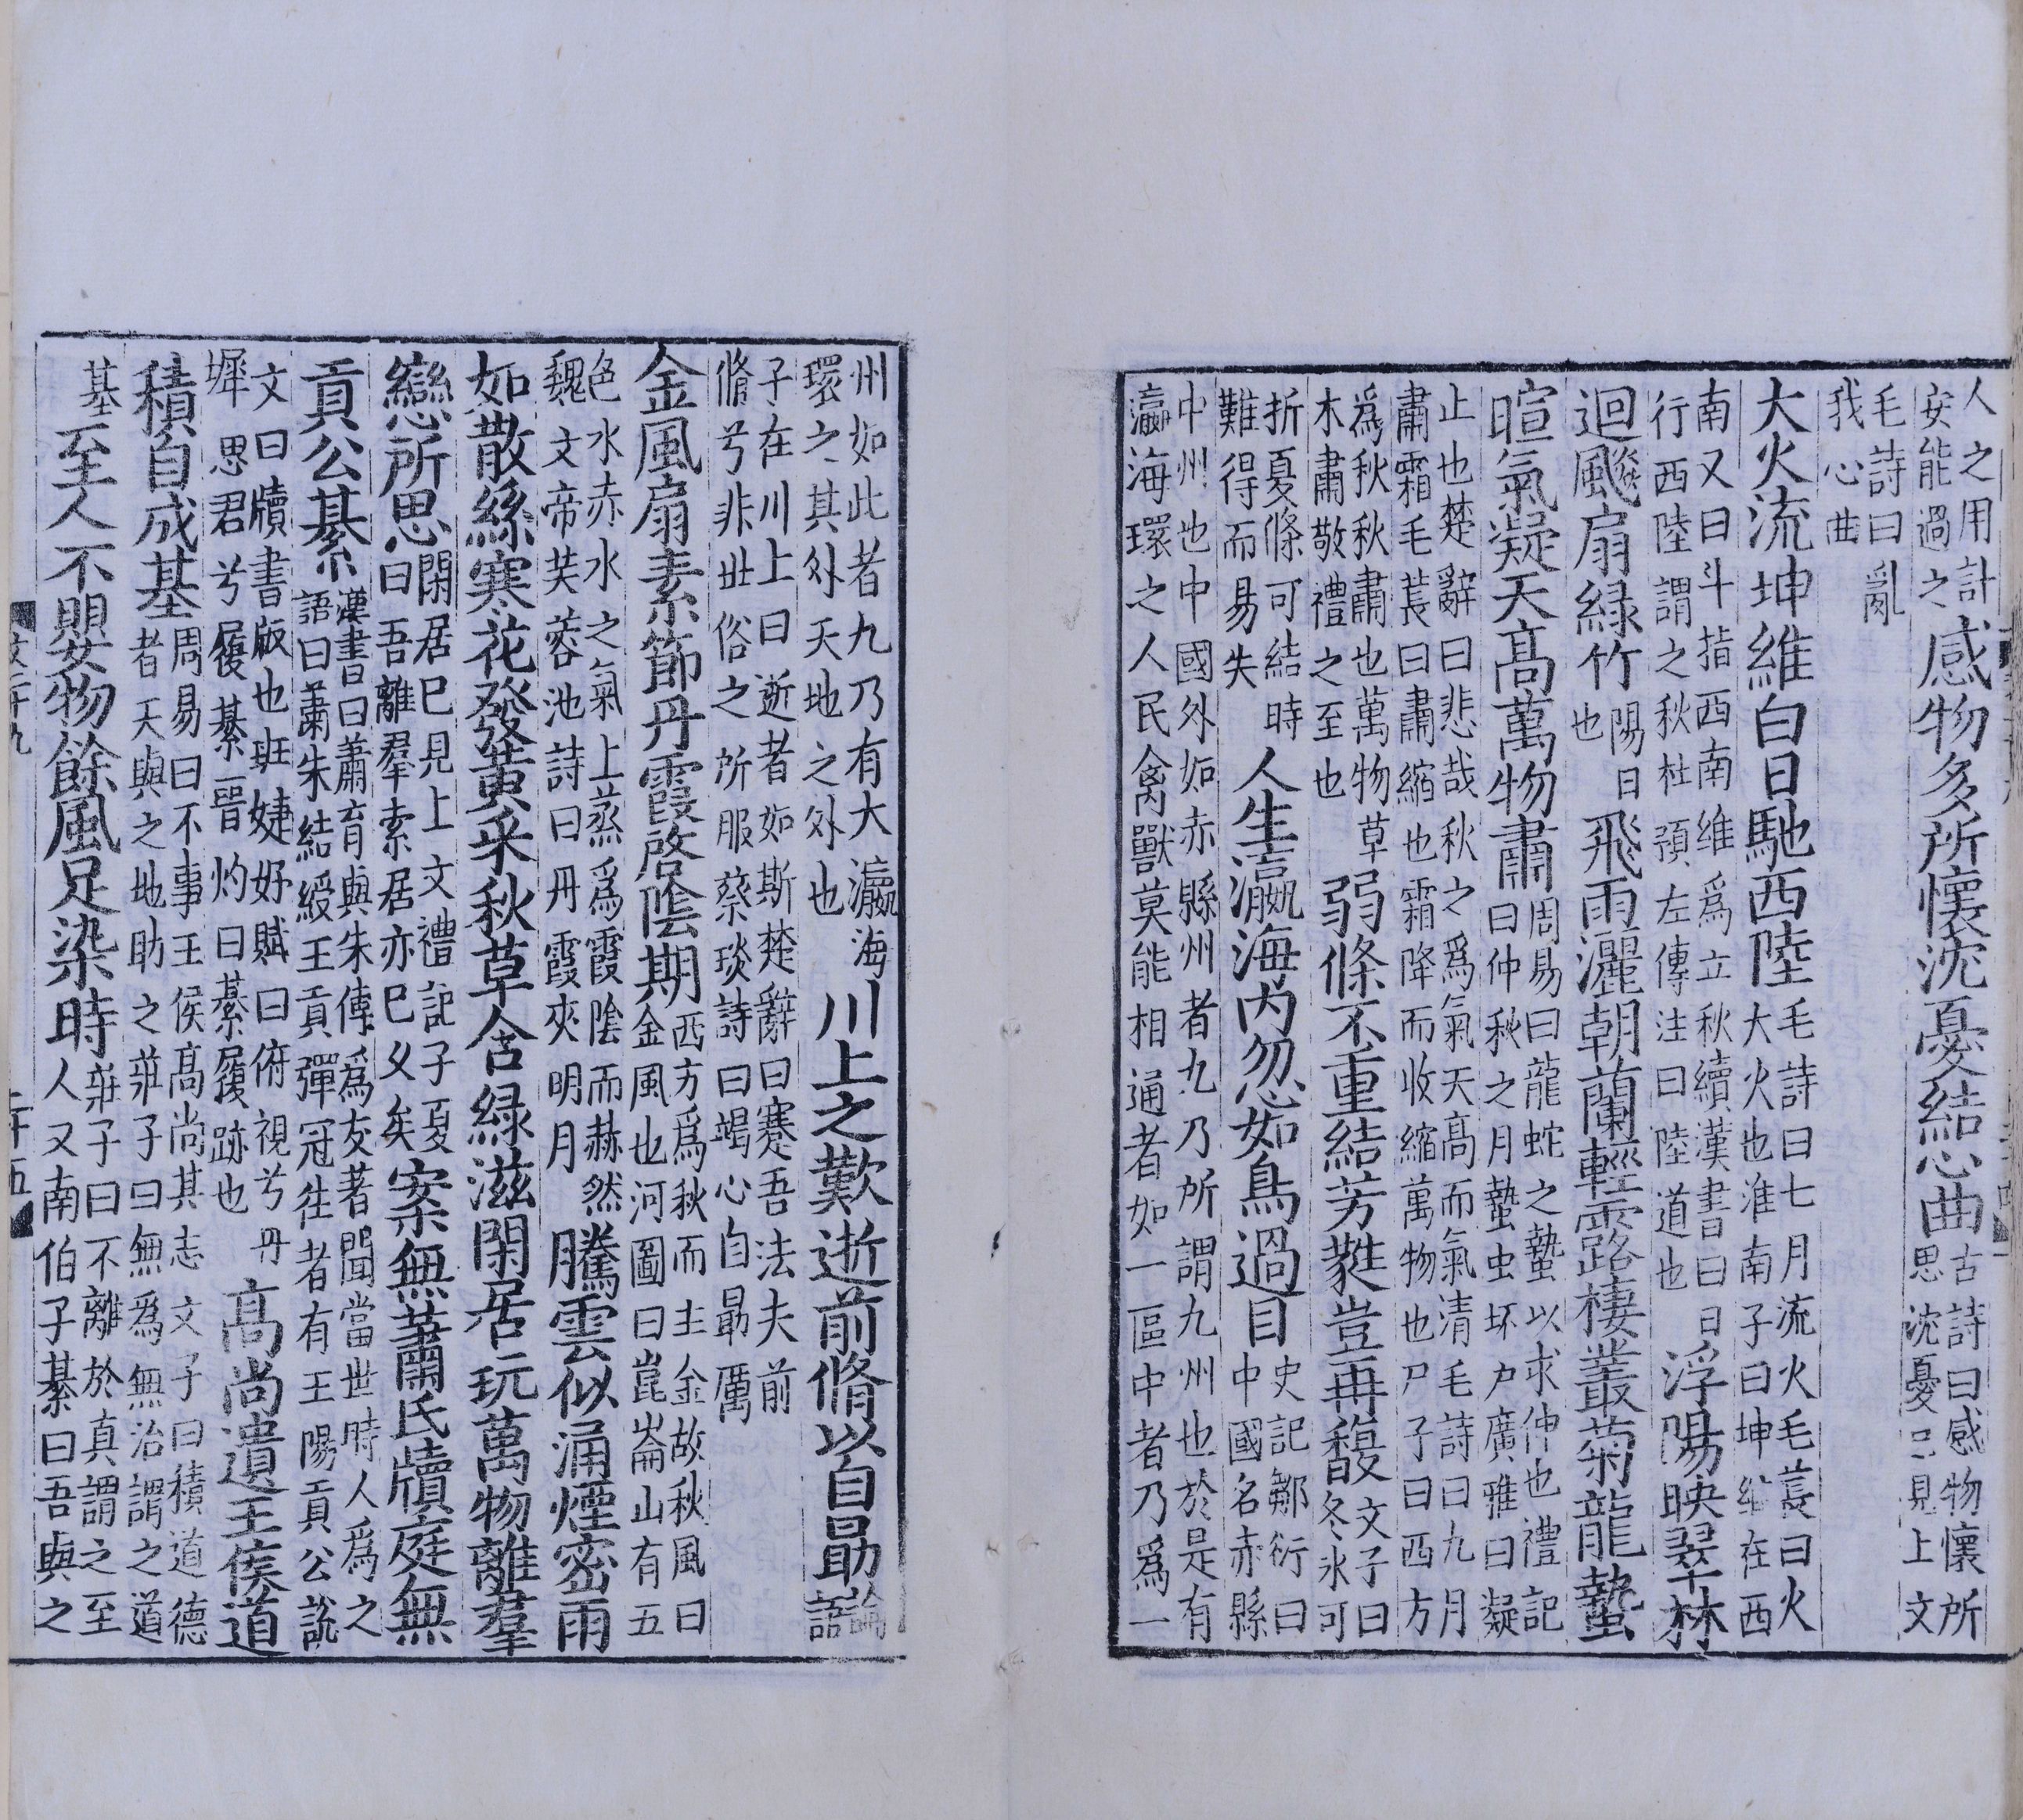 人之用計安能過之感物多所懷沈憂結心曲古詩曰感物懷所思沈憂已見上文
毛詩曰亂我心曲
大火流坤維白日馳西陸毛詩曰七月流火毛萇曰火大火也淮南子曰坤維在西
南又曰斗指西南維爲立秋續漢書曰日行西陸謂之秋杜預左傳注曰陸道也浮陽映翠林
迴飇扇緑竹陽日也飛雨灑朝蘭輕露棲叢菊龍蟄
暄氣凝天髙萬物肅周易曰龍蛇之蟄以求伸也禮記曰仲秋之月蟄虫坏户廣雅曰凝
止也楚辭曰悲哉秋之爲氣天髙而氣清毛詩曰九月肅霜毛萇曰肅縮也霜降而收縮萬物也尸子曰西方
爲秋秋肅也萬物草木肅敬禮之至也弱條不重結芳蕤豈再馥文子曰冬冰可
折夏條可結時難得而易失人生瀛海内忽如鳥過目史記鄒衍曰中國名赤縣
中州也中國外如赤縣州者九乃所謂九州也於是有瀛海環之人民禽獸莫能相通者如一區中者乃爲一
州如此者九乃有大瀛海環之其外天地之外也川上之歎逝前脩以自勗論語
子在川上曰逝者如斯楚辭曰謇吾法夫前脩兮非世俗之所服蔡琰詩曰竭心自勗厲
金風扇素節丹霞啓陰期西方爲秋而主金故秋風曰金風也河圖曰崑崙山有五
色水赤水之氣上蒸爲霞陰而赫然魏文帝芙蓉池詩曰丹霞夾明月騰雲似涌煙密雨
如散絲寒花發黄采秋草含緑滋閑居玩萬物離羣
戀所思閑居已見上文禮記子夏曰吾離羣索居亦已久矣案無蕭氏牘庭無
貢公綦漢書曰蕭育與朱博爲友著聞當世時人爲之語曰蕭朱結綬王貢彈冠往者有王陽貢公説
文曰牘書版也班婕妤賦曰俯視兮丹墀思君兮履綦晉灼曰綦履跡也髙尚遺王侯道
積自成基周易曰不事王侯髙尚其志文子曰積道德者天與之地助之莊子曰無爲無治謂之道
基至人不嬰物餘風足染時莊子曰不離於真謂之至人又南伯子綦曰吾與之
文二十九
二十五